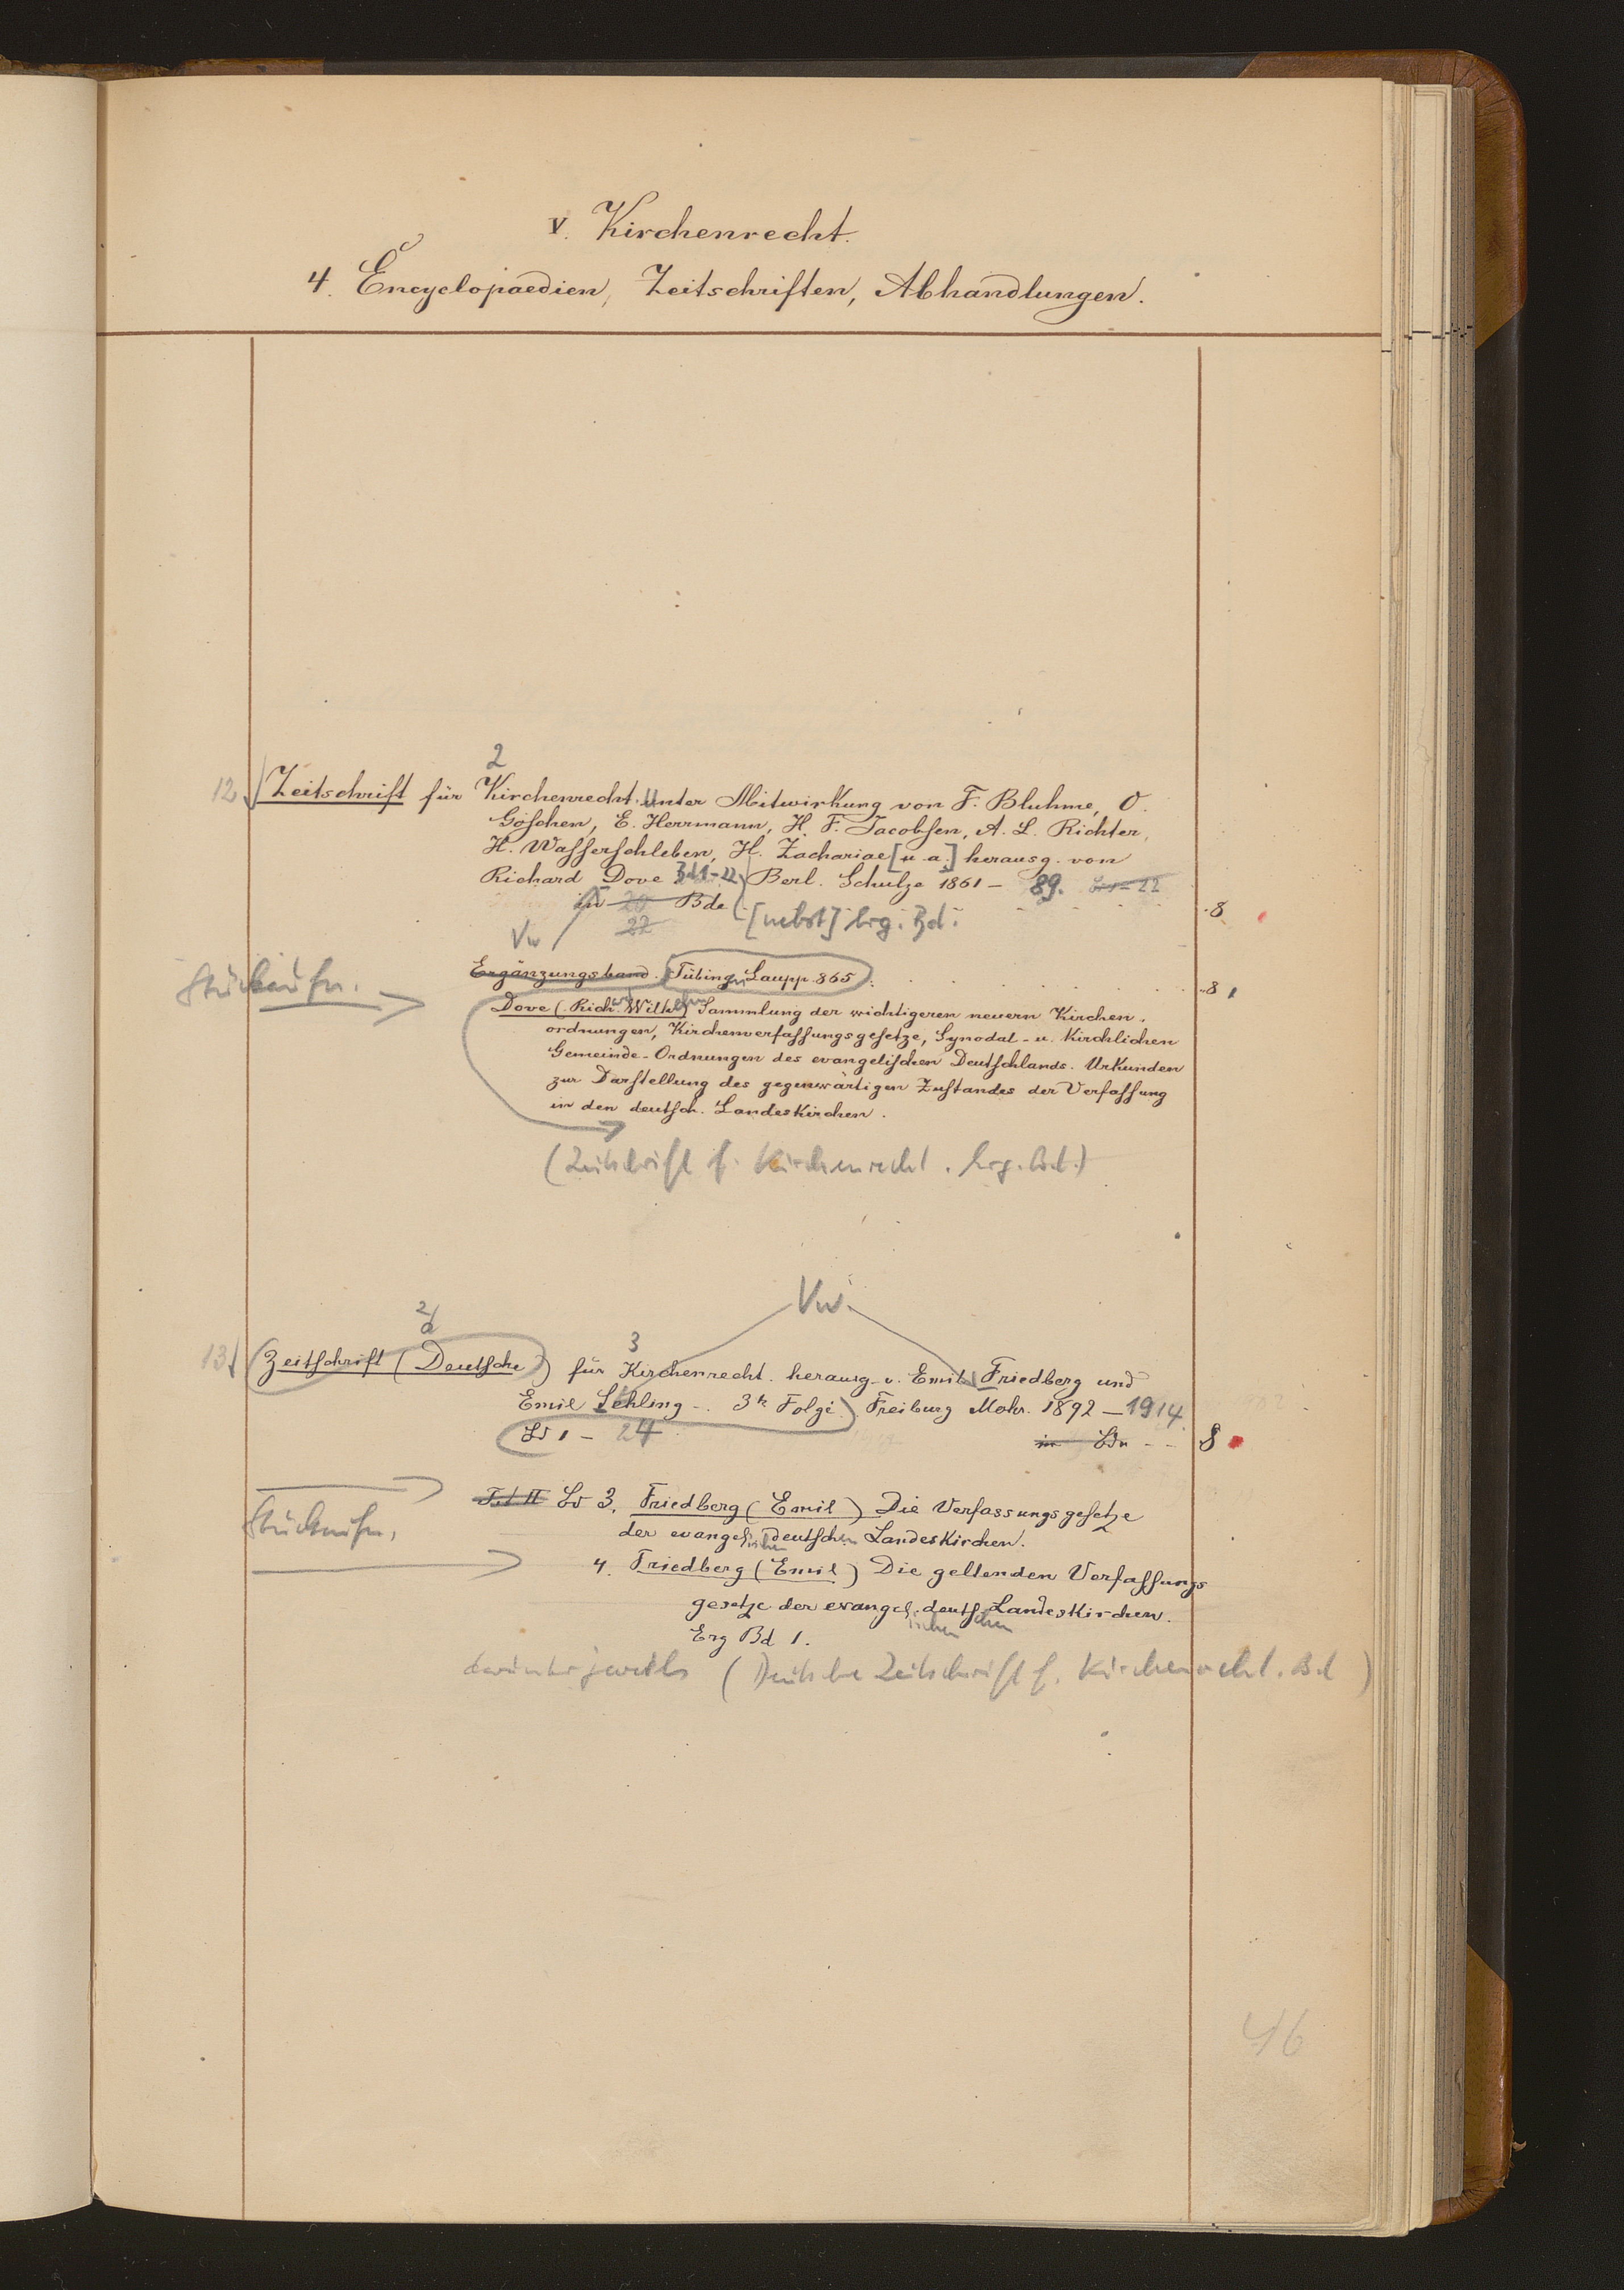 V. Kirchenrecht.
4. Encyclopaedien, Zeitschriften, Abhandlungen.
2
12 Zeitschrift für Kirchenrecht. Unter Mitwirkung von F. Bluhme, O.
Göschen, E. Herrmann, H. F. Jacobsen, A. L. Richter,
H. Wasserschleben, H. Zachariae [u. a.] herausg. von
Richard Dove Bd 1-22 Berl. Schulze 1861 – 89. Bd 1-22
in 20 Bde [nebst] Erg. Bd. 8
Vw 22
Ergänzungsband. Tübingen Laupp 865. 8
Dove (Rich. Wilh.) Sammlung der wichtigeren neuern Kirchen-
ordnungen, Kirchenverfassungsgesetze, Synodal- u. Kirchlichen
Gemeinde-Ordnungen des evangelischen Deutschlands. Urkunden
zur Darstellung des gegenwärtigen Zustandes der Verfassung
in den deutsch. Landeskirchen.
(Zeitschrift f. Kirchenrecht. Erg. Bd.)
Vw.
2 3
13 Zeitschrift (Deutsche) für Kirchenrecht. herausg. v. Emil Friedberg und
Emil Sehling -. 3te Folge. Freiburg Mohr. 1892 – 1914.
Bd 1 – 24 in Bdn 8
Bd 3. Friedberg (Emil) Die Verfassungsgesetze
der evangelischen deutschen Landeskirchen.
4. Friedberg (Emil) Die geltenden Verfassungs
gesetze der evangelischen deutschen Landeskirchen.
Erg Bd 1.
darunter jeweils (Deutsche Zeitschrift f. Kirchenrecht. Bd )
46